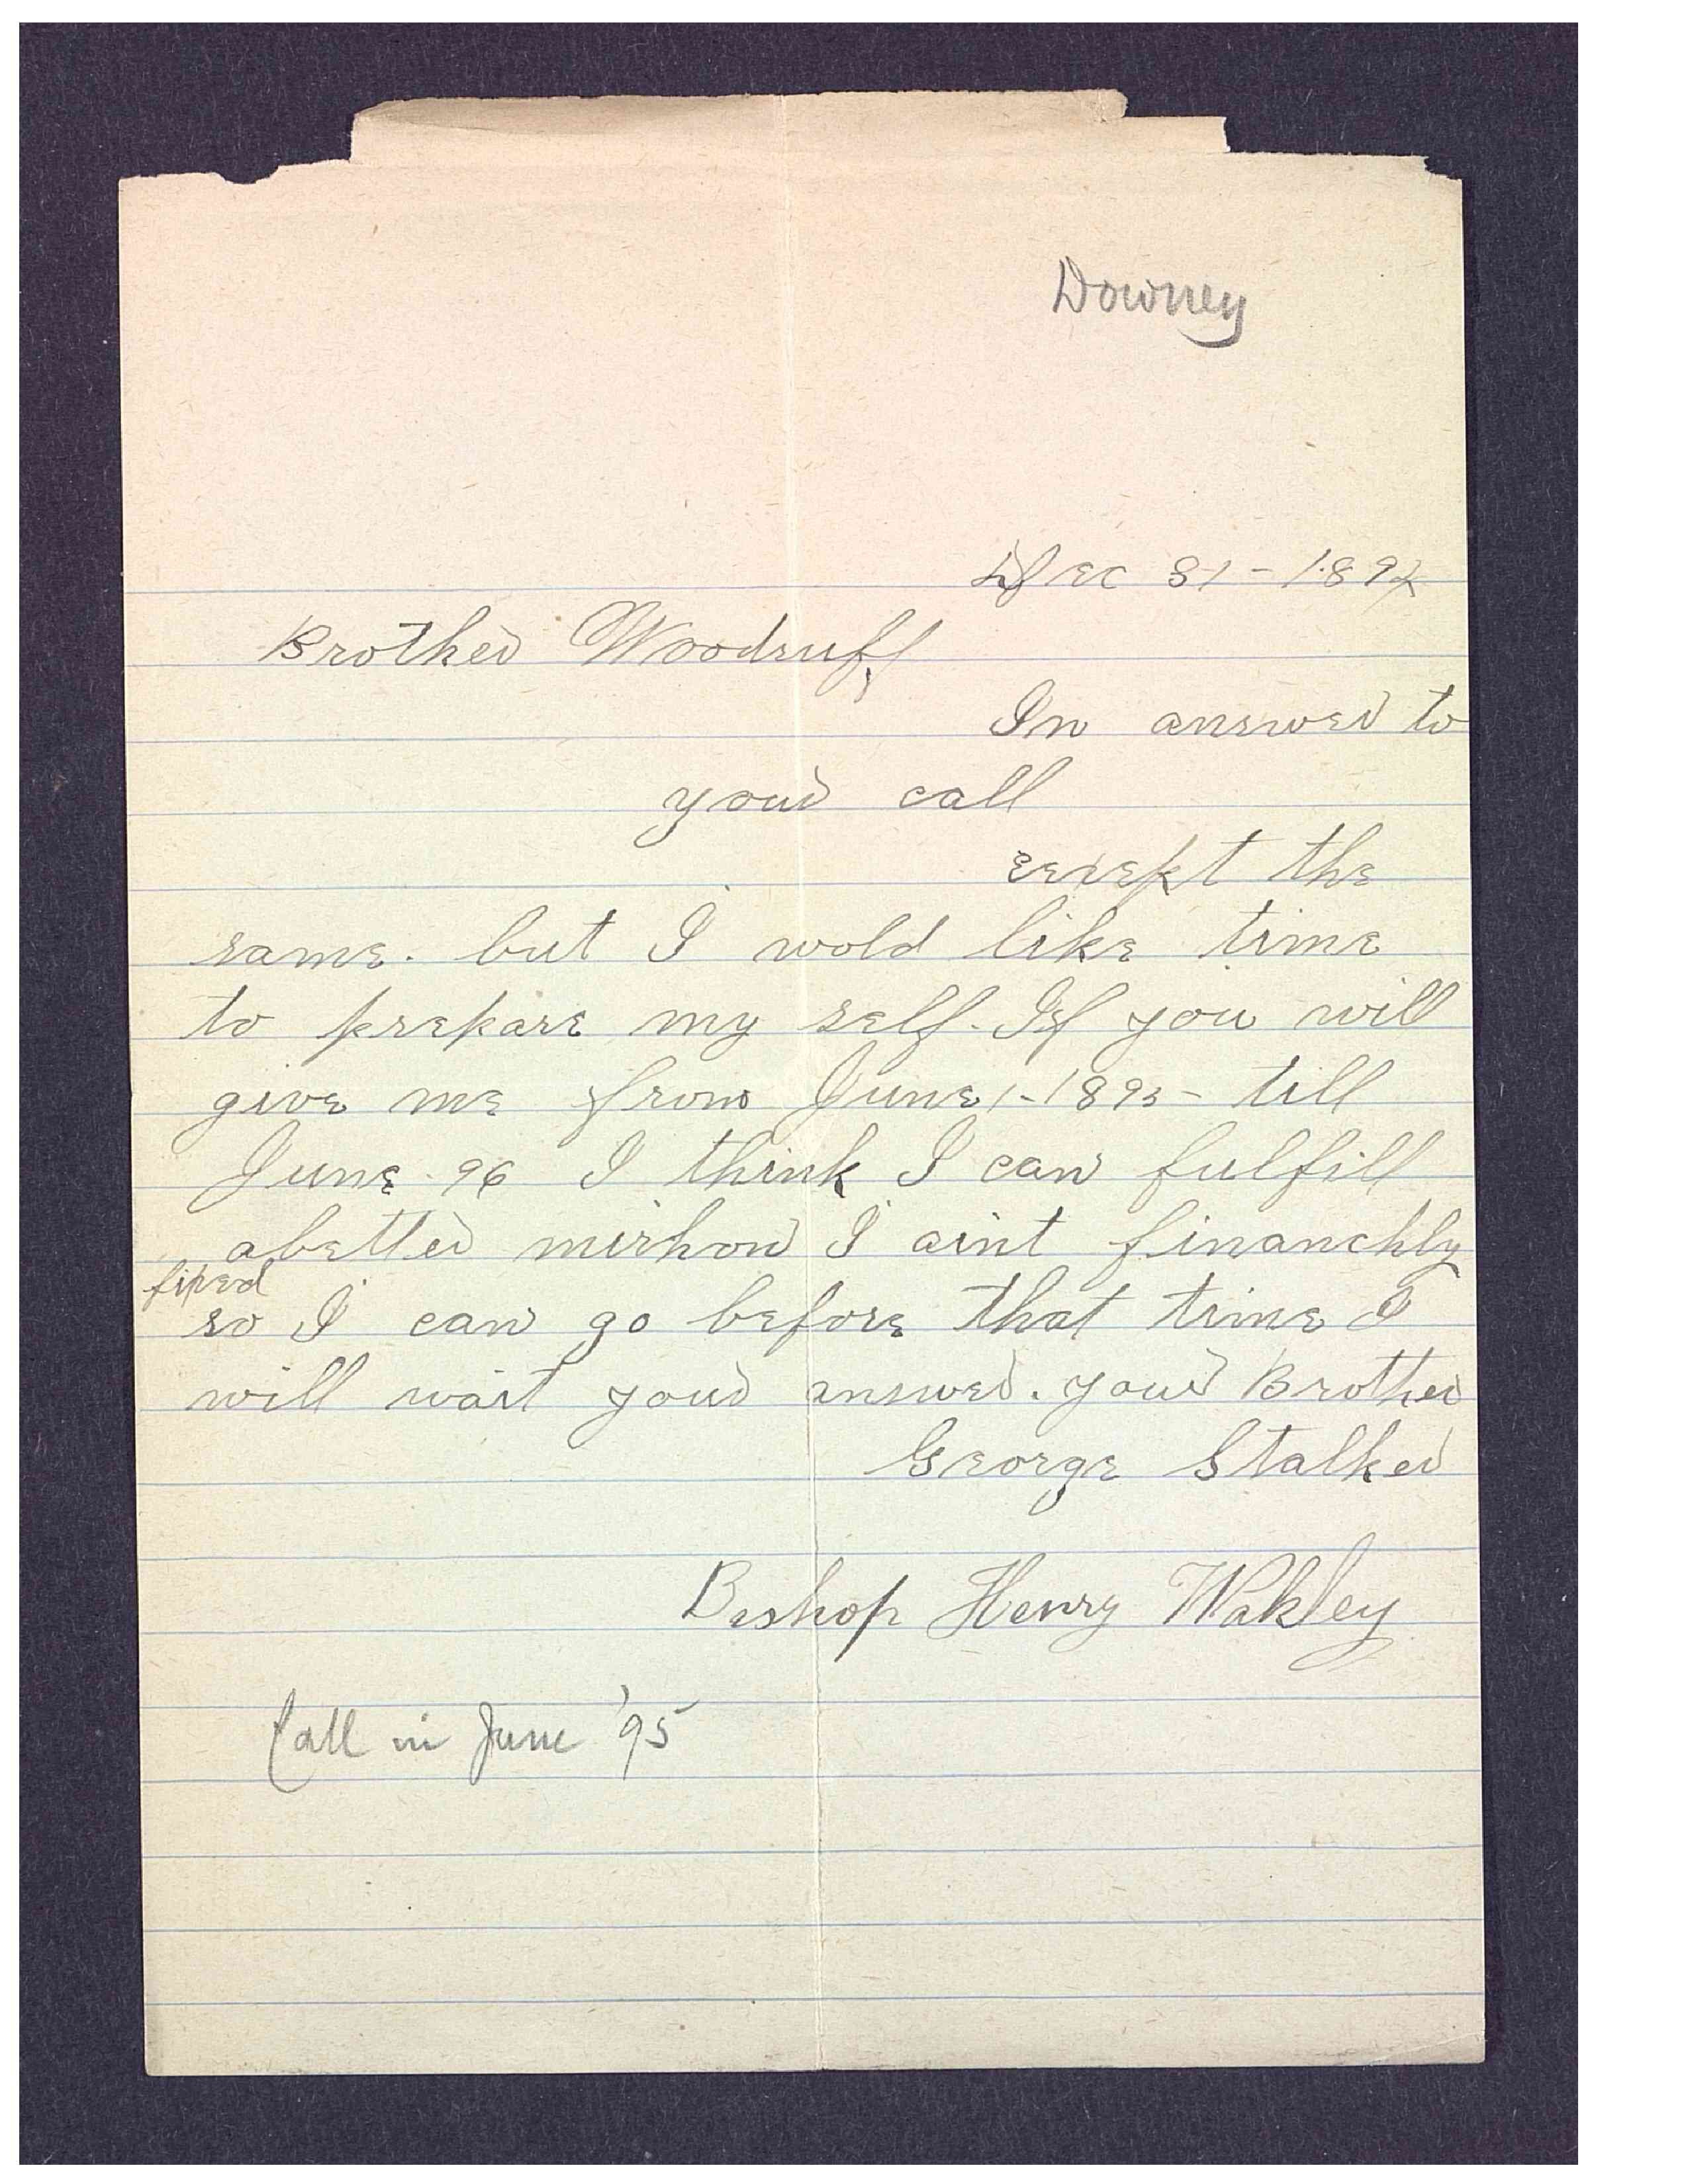 Downey
Dec 31-1894
Brother Woodruff,
In answer to
your call
except the
same. but I wold like time
to prepare my self. If you will
give me from June 1-1895- till
June 96 I think I can fulfill
abetter mishon I aint financhly
fixed
so I can go before that time I
will wait your answer. your Brother
George Stalker
Bishop Henry Wakley
Call in June '95